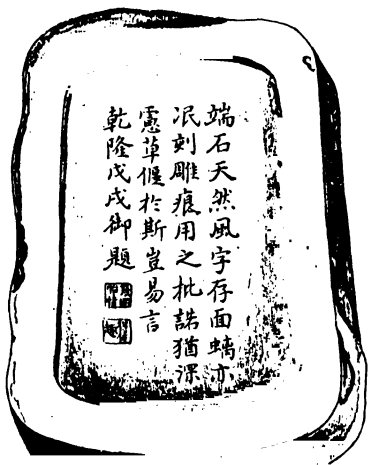 端石天然風字存面螭亦
泯刻雕痕用之批諾猶深
慮草偃於斯豈易言
乾隆戊戌御題